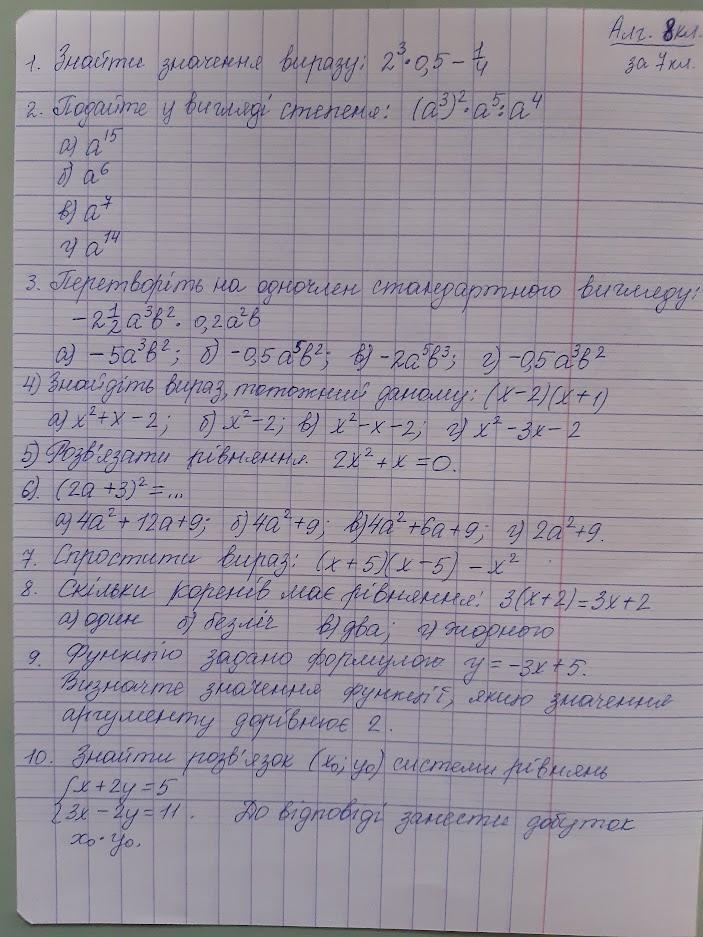 Алг. 8кл.
за 7кл.
1. Знайти значення виразу: 2³·0,5 - 1/4
2. Подайте у вигляді степеня: (a³)²·a⁵:a⁴
а) a¹⁵
б) a⁶
в) a⁷
г) a¹⁴
3. Перетворіть на одночлен стандартного вигляду:
-2 1/2 a³b² · 0,2a²b
а) -5a³b²; б) -0,5a⁵b²; в) -2a⁵b³; г) -0,5a³b²
4) Знайдіть вираз, тотожний даному: (x-2)(x+1)
а) x²+x-2; б) x²-2; в) x²-x-2; г) x²-3x-2
5) Розв'язати рівняння 2x²+x=0.
6). (2a+3)²=...
а) 4a²+12a+9; б) 4a²+9; в) 4a²+6a+9; г) 2a²+9.
7. Спростити вираз: (x+5)(x-5) - x²
8. Скільки коренів має рівняння: 3(x+2)=3x+2
а) один б) безліч в) два; г) жодного
9. Функцію задано формулою y=-3x+5.
Визначте значення функції, якщо значення
аргументу дорівнює 2.
10. Знайти розв'язок (x₀; y₀) системи рівнянь
{x+2y=5
{3x-2y=11. До відповіді занести добуток
x₀·y₀.